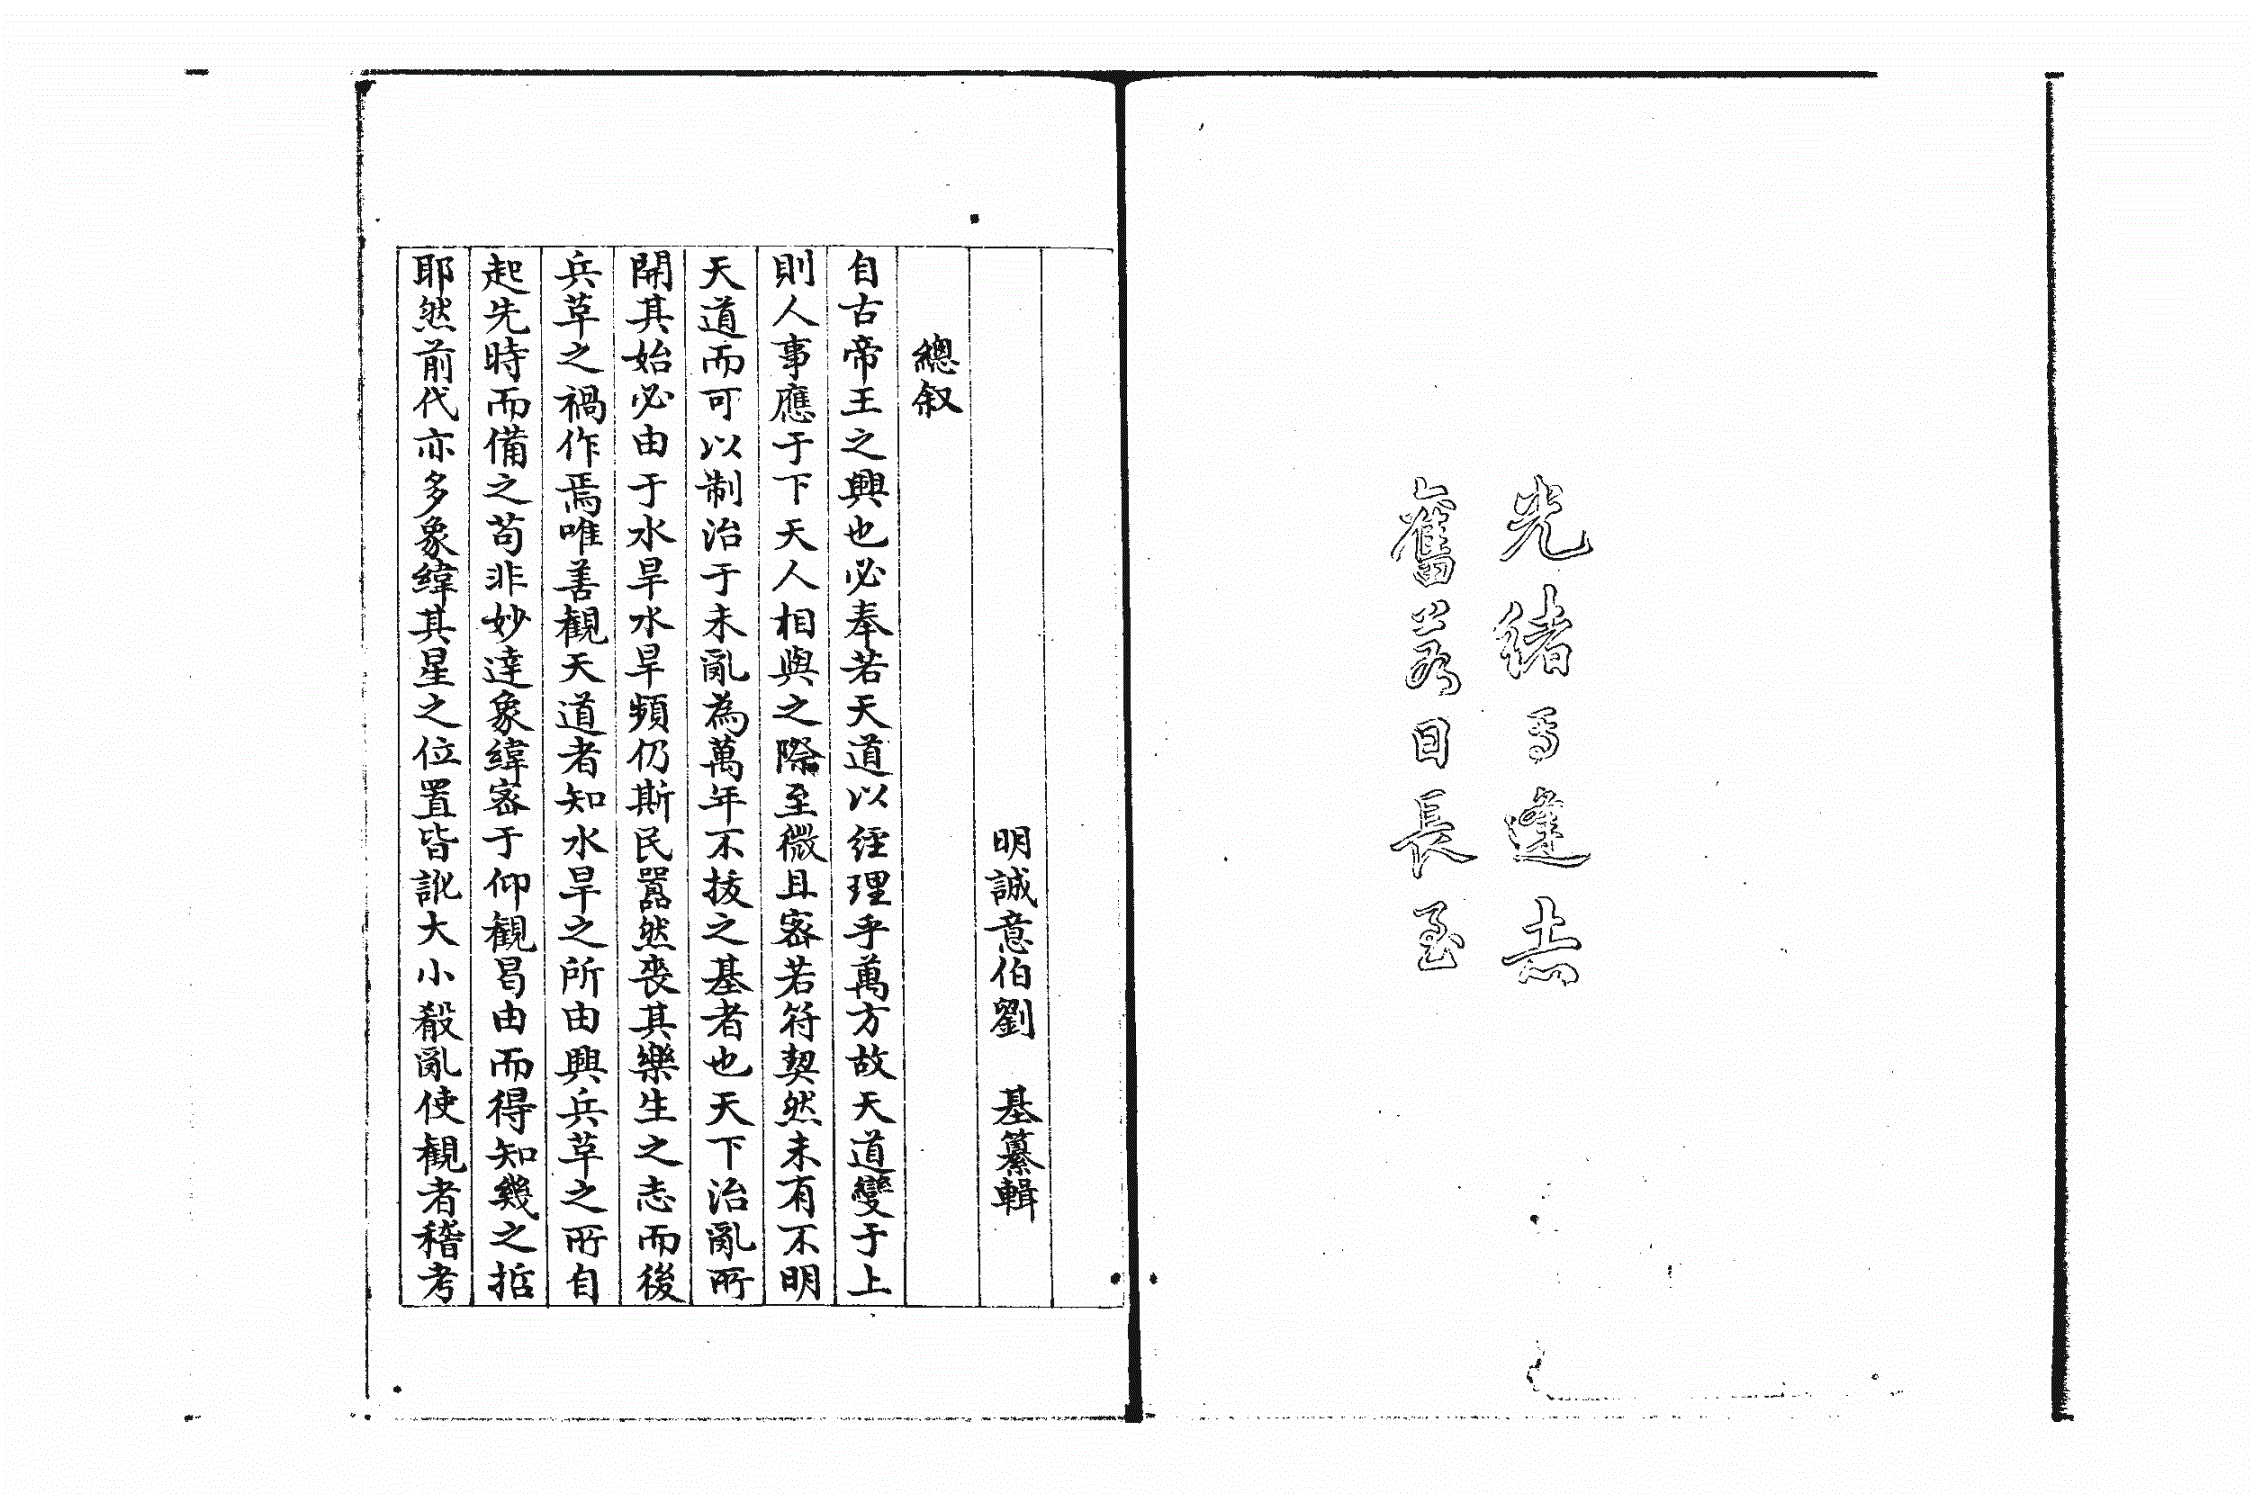 光緒焉逢
舊著日長至
明誠意伯劉　基纂輯
總叙
自古帝王之興也必奉若天道以經理乎萬方故天道變于上
則人事應于下天人相與之際至微且密若符契然未有不明
天道而可以制治于未亂為萬年不拔之基者也天下治亂所
開其始必由于水旱水旱頻仍斯民嚣然喪其樂生之志而後
兵草之禍作焉唯善觀天道者知水旱之所由興兵草之所自
起先時而備之苟非妙達象緯密于仰觀曷由而得知幾之哲
耶然前代亦多象緯其星之位置皆訛大小殽亂使觀者稽考